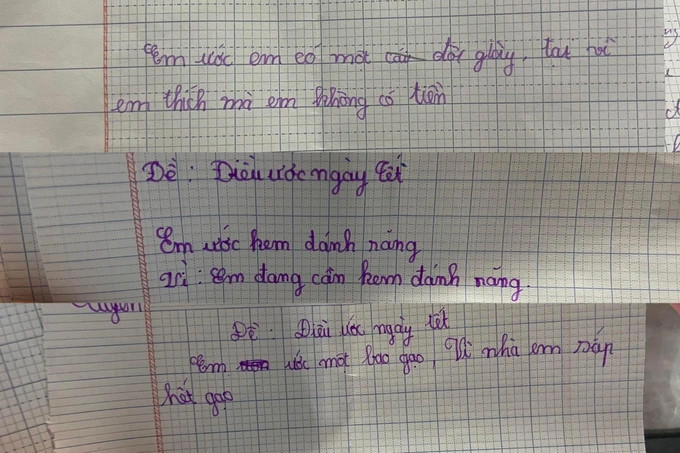 Em ước em có một cái đôi giày, tại vì
em thích mà em không có tiền
Đề : Điều ước ngày tết
Em ước kem dánh răng
Vì : Em đang cần kem đánh răng.
Đề : Điều ước ngày tết
Em ước một bao gạo, Vì nhà em sắp
hết gạo